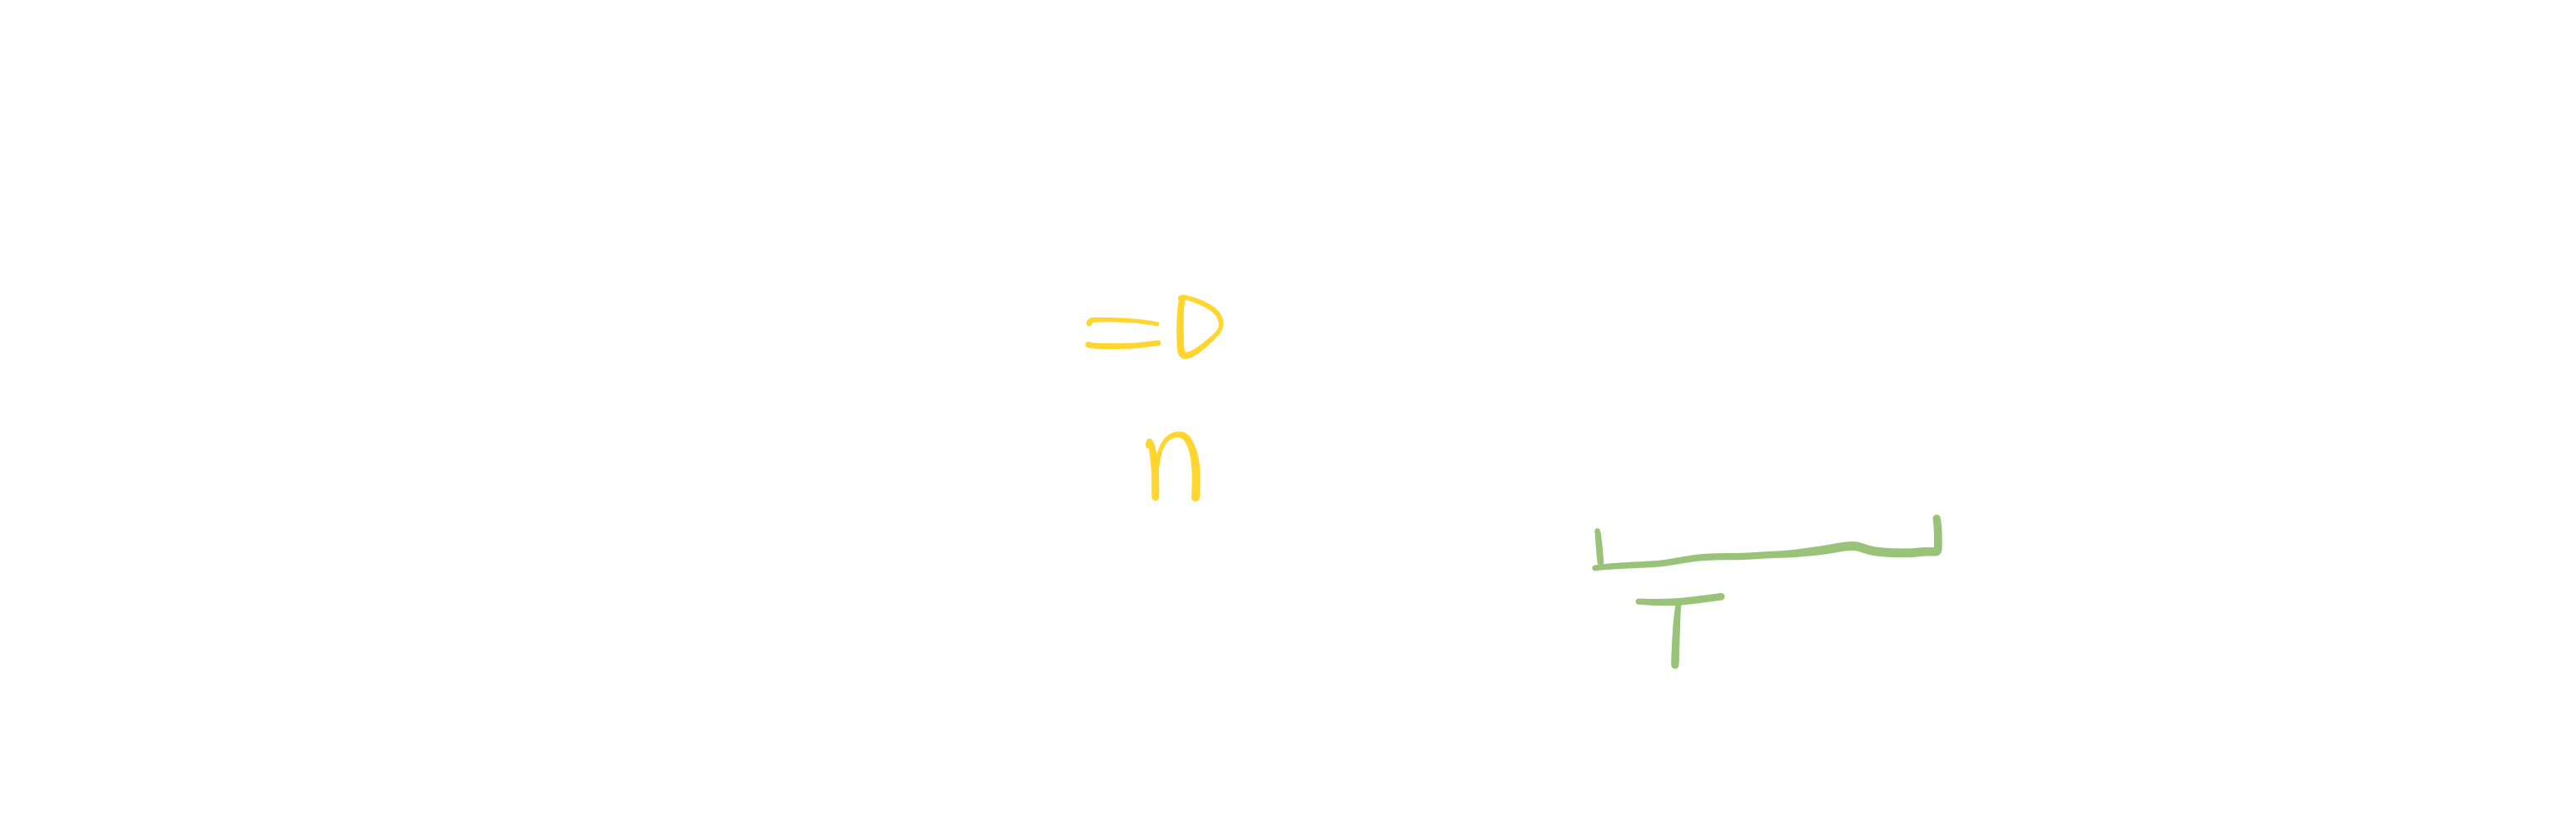 ⇒
n
T